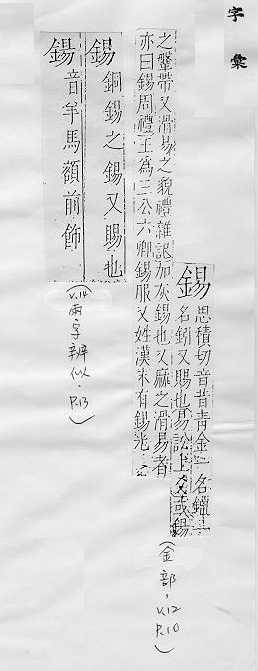 字彙
錫
思積切音昔青金一名鑞一
名鈏又賜也易訟上九或錫
之鞶帶又滑易之貌禮雜記加灰錫也又麻之滑易者
亦曰錫周禮王為三公六卿錫服又姓漢末有錫光
(金部,V.12 P.10)
錫 銅錫之錫又賜也
鍚 音羊馬額前飾
(V.14 兩字辨似.P.13)